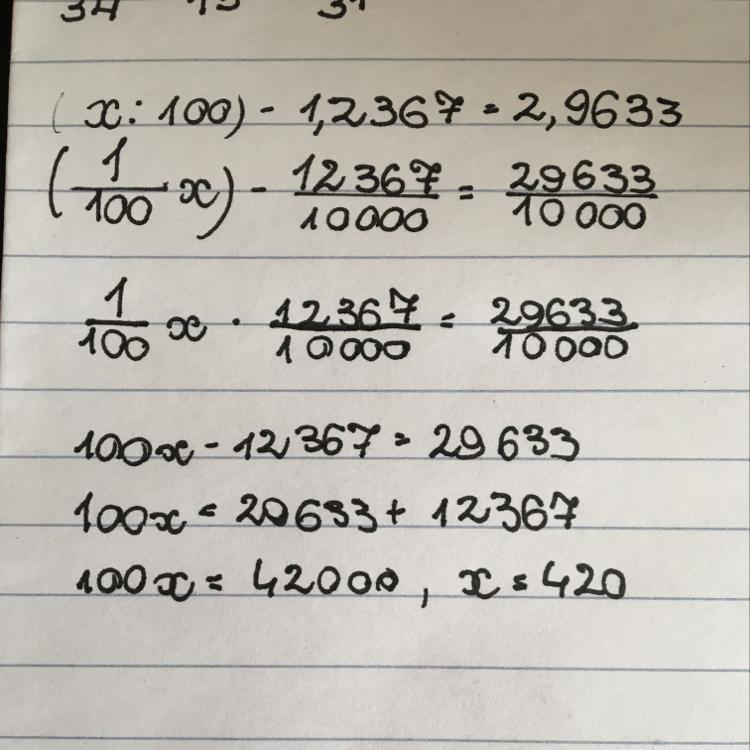 34 15 31
( x : 100) - 1,2367 = 2,9633
(1/100 · x) - 12367/10000 = 29633/10 000
1/100 x · 12367/10000 = 29633/10 000
100x - 12 367 = 29 633
100x = 29633 + 12367
100x = 42000 , x = 420